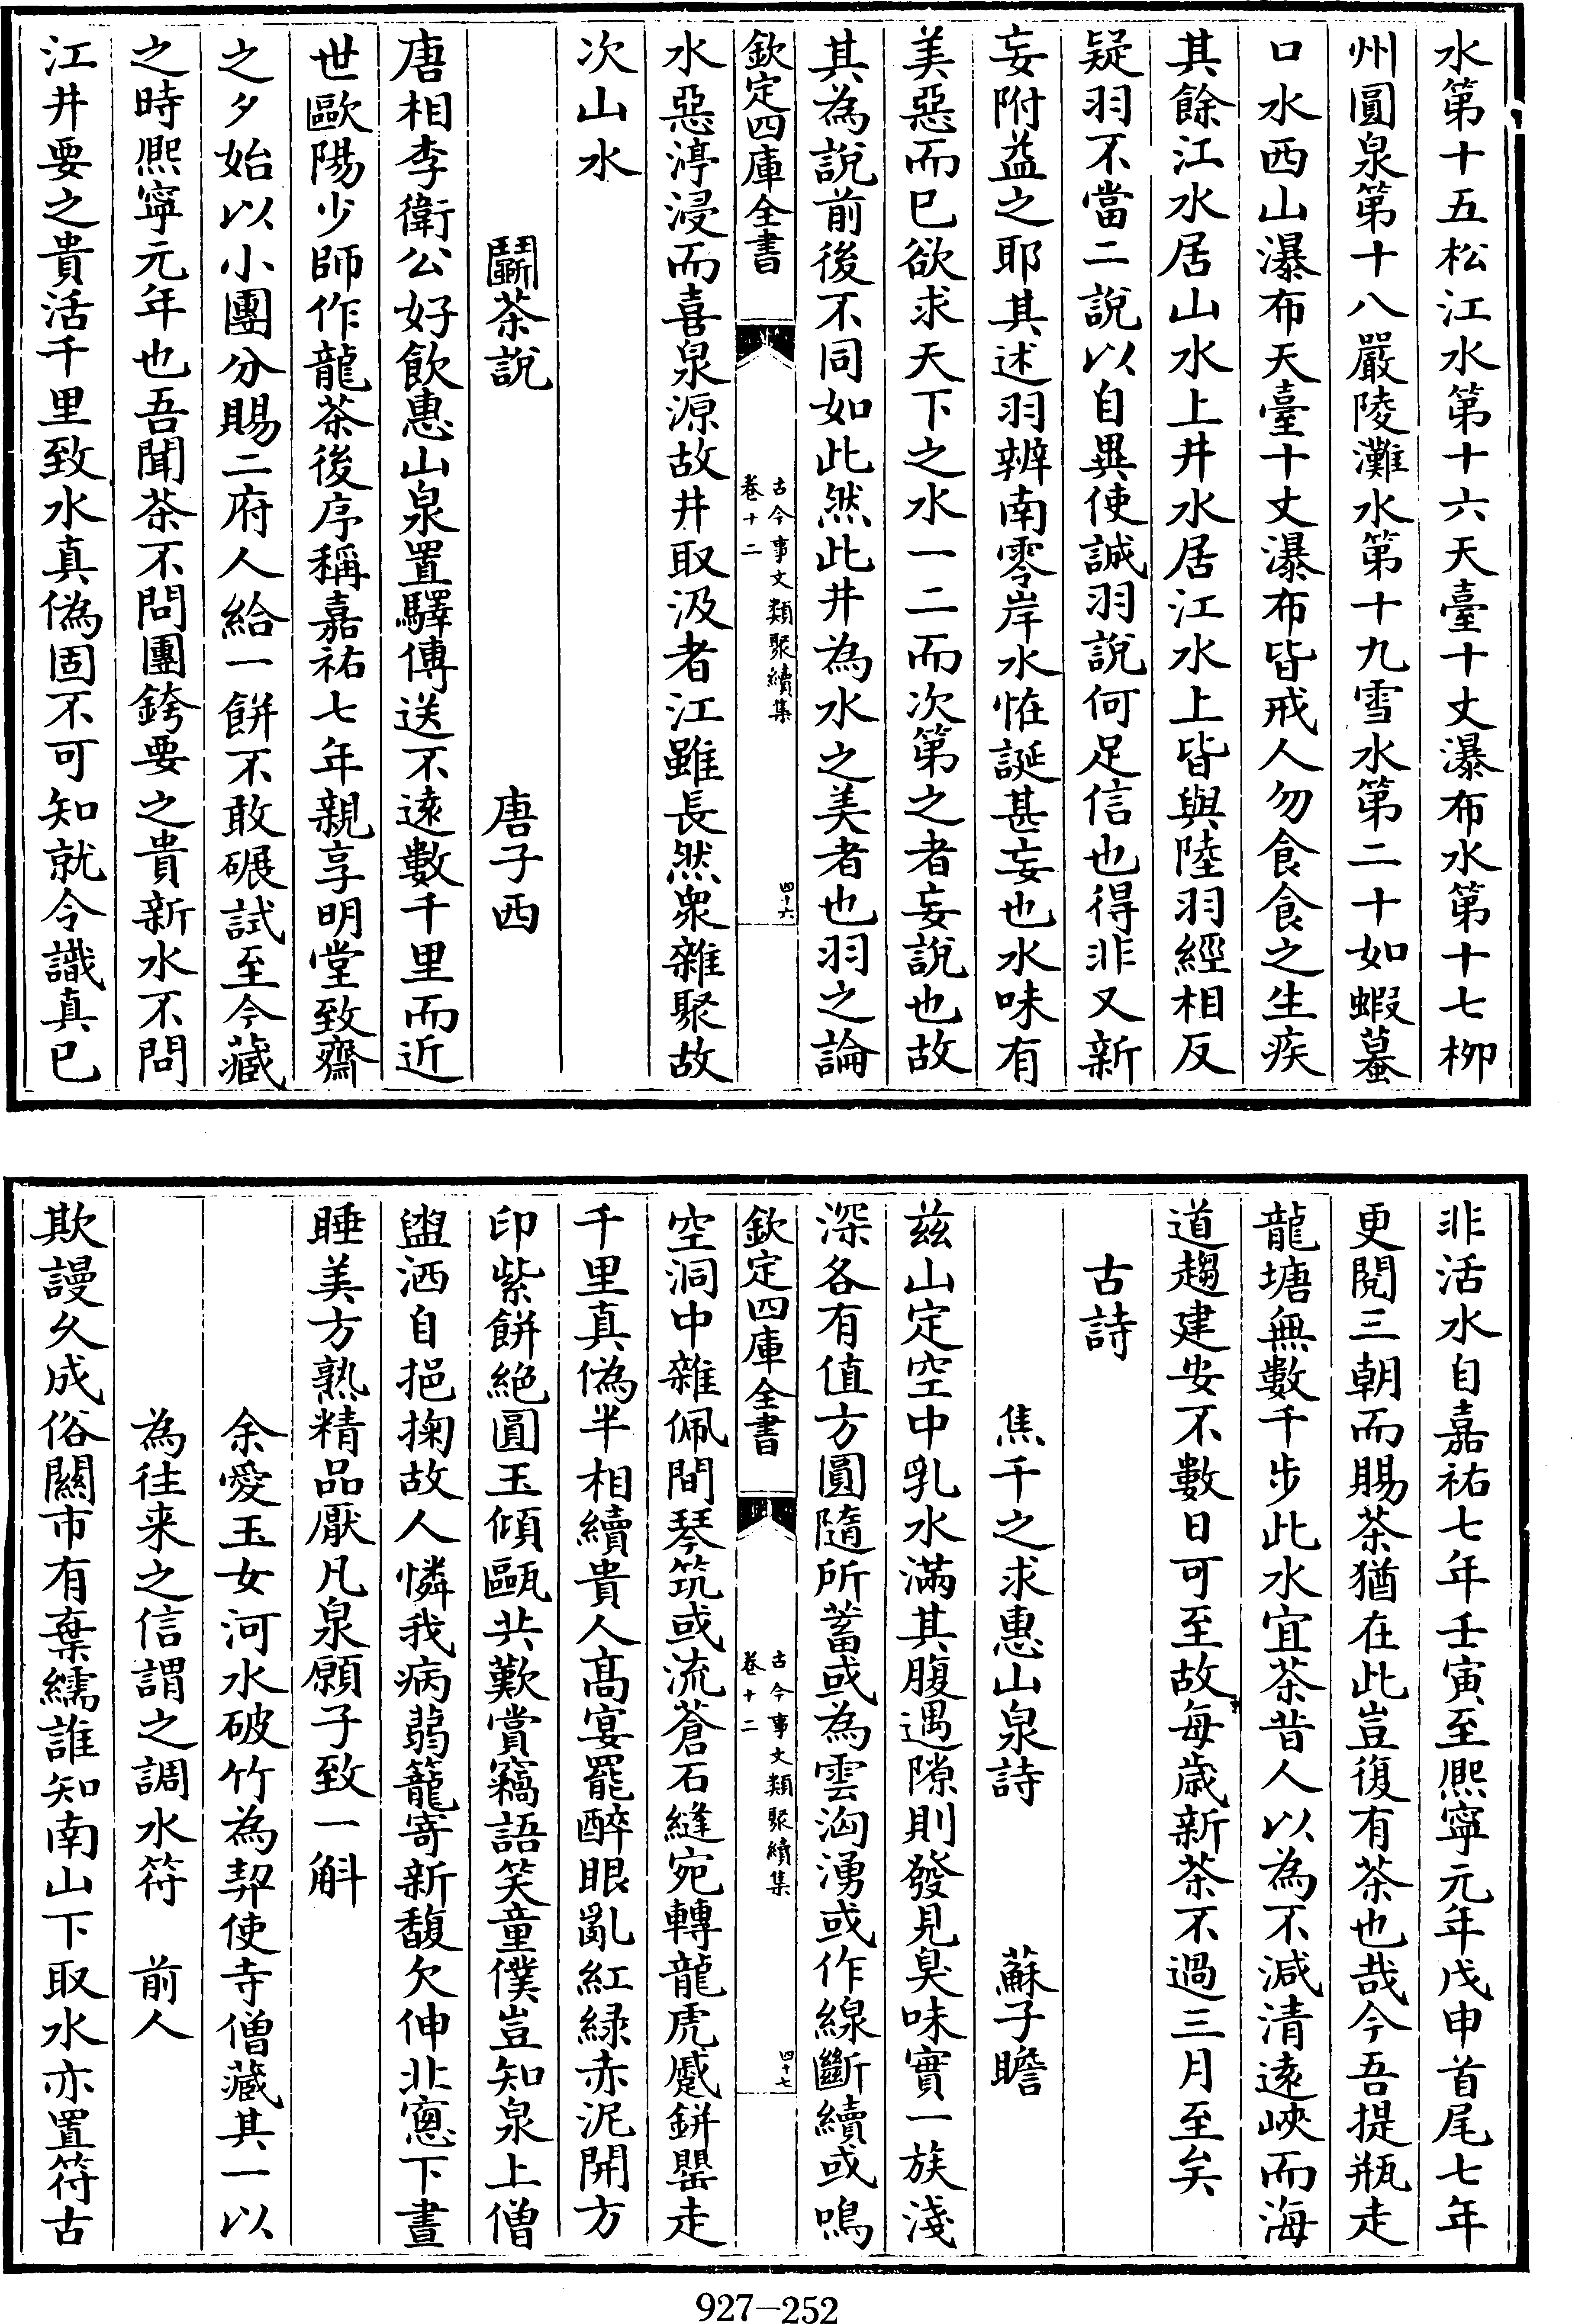 水第十五松江水第十六天臺十丈瀑布水第十七柳
州圓泉第十八嚴陵灘水第十九雪水第二十如蝦蟇
口水西山瀑布天臺十丈瀑布皆戒人勿食食之生疾
其餘江水居山水上井水居江水上皆與陸羽經相反
疑羽不當二說以自異使誠羽說何足信也得非又新
妄附益之耶其述羽辨南零岸水恠誕甚妄也水味有
美惡而已欲求天下之水一二而次第之者妄說也故
其為說前後不同如此然此井為水之美者也羽之論
欽定四庫全書
古今事文類聚續集
卷十二
四十六
水惡渟浸而喜泉源故井取汲者江雖長然衆雜聚故
次山水
鬭茶說 唐子西
唐相李衛公好飲惠山泉置驛傳送不遠數千里而近
世歐陽少師作龍茶後序稱嘉祐七年親享明堂致齋
之夕始以小團分賜二府人給一餅不敢碾試至今藏
之時熙寧元年也吾聞茶不問團銙要之貴新水不問
江井要之貴活千里致水真偽固不可知就令識真已
非活水自嘉祐七年壬寅至熙寧元年戊申首尾七年
更閱三朝而賜茶猶在此豈復有茶也哉今吾提瓶走
龍塘無數千步此水宜茶昔人以為不減清遠峽而海
道趨建安不數日可至故每歲新茶不過三月至矣
古詩
焦千之求惠山泉詩 蘇子瞻
茲山定空中乳水滿其腹遇隙則發見臭味實一族淺
深各有值方圓隨所蓄或為雲洶湧或作線斷續或鳴
欽定四庫全書
古今事文類聚續集
卷十二
四十七
空洞中雜佩間琴筑或流蒼石縫宛轉龍虎蹙缾罌走
千里真偽半相續貴人高宴罷醉眼亂紅綠赤泥開方
印紫餅絕圓玉傾甌共歎賞竊語笑童僕豈知泉上僧
盥洒自挹掬故人憐我病蒻籠寄新馥欠伸北窻下晝
睡美方熟精品厭凡泉願子致一斛
余愛玉女河水破竹為契使寺僧藏其一以
為往来之信謂之調水符 前人
欺謾久成俗關市有棄繻誰知南山下取水亦置符古
927-252